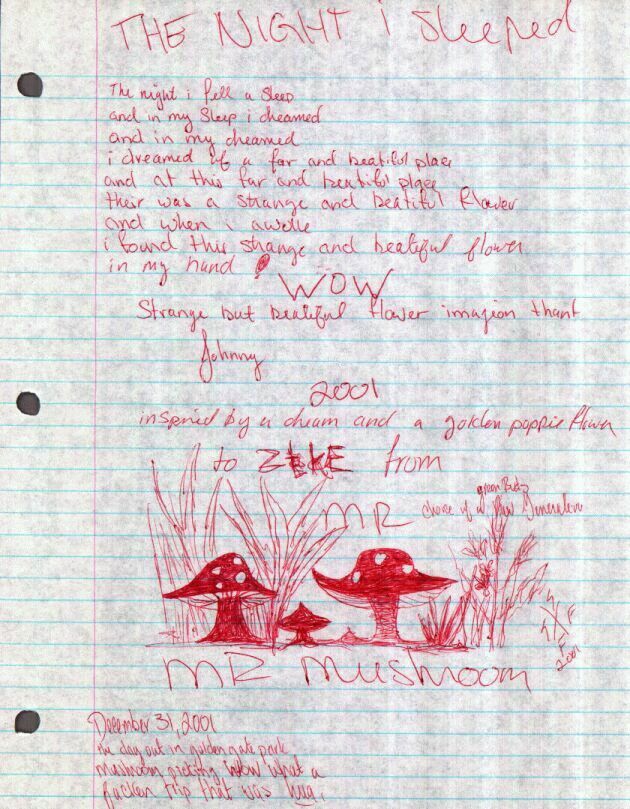 THE NIGHT i Sleeped
The night i fell a Sleep
and in my Sleep i dreamed
and in my dreamed
i dreamed of a far and beatiful place
and at this far and beatiful place
their was a strange and beatiful flower
and when i awoke
i found this strange and beatiful flower
in my hand
WOW
Strange but beatiful flower imagion thant
Johnny
2001
inspried by a dream and a golden poppie flower
to ZEKE from
green Buds
MR
chose of a New
MR Mushroom
2001
December 31, 2001
the day out in golden gate park
mushroom picking Wow what a
fucken trip that was